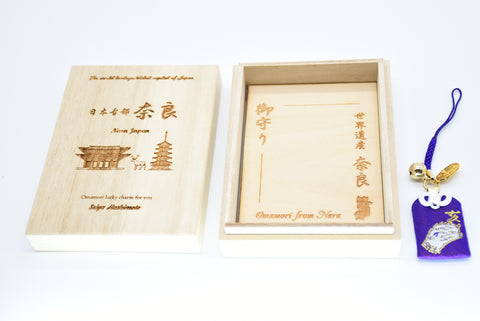 The world heritage/oldest capital of Japan
日本古都 奈良
Nara Japan
Omamori lucky charm for you
Seiya Hashimoto
世界遺産 奈良
御守り
Omamori from Nara
亥